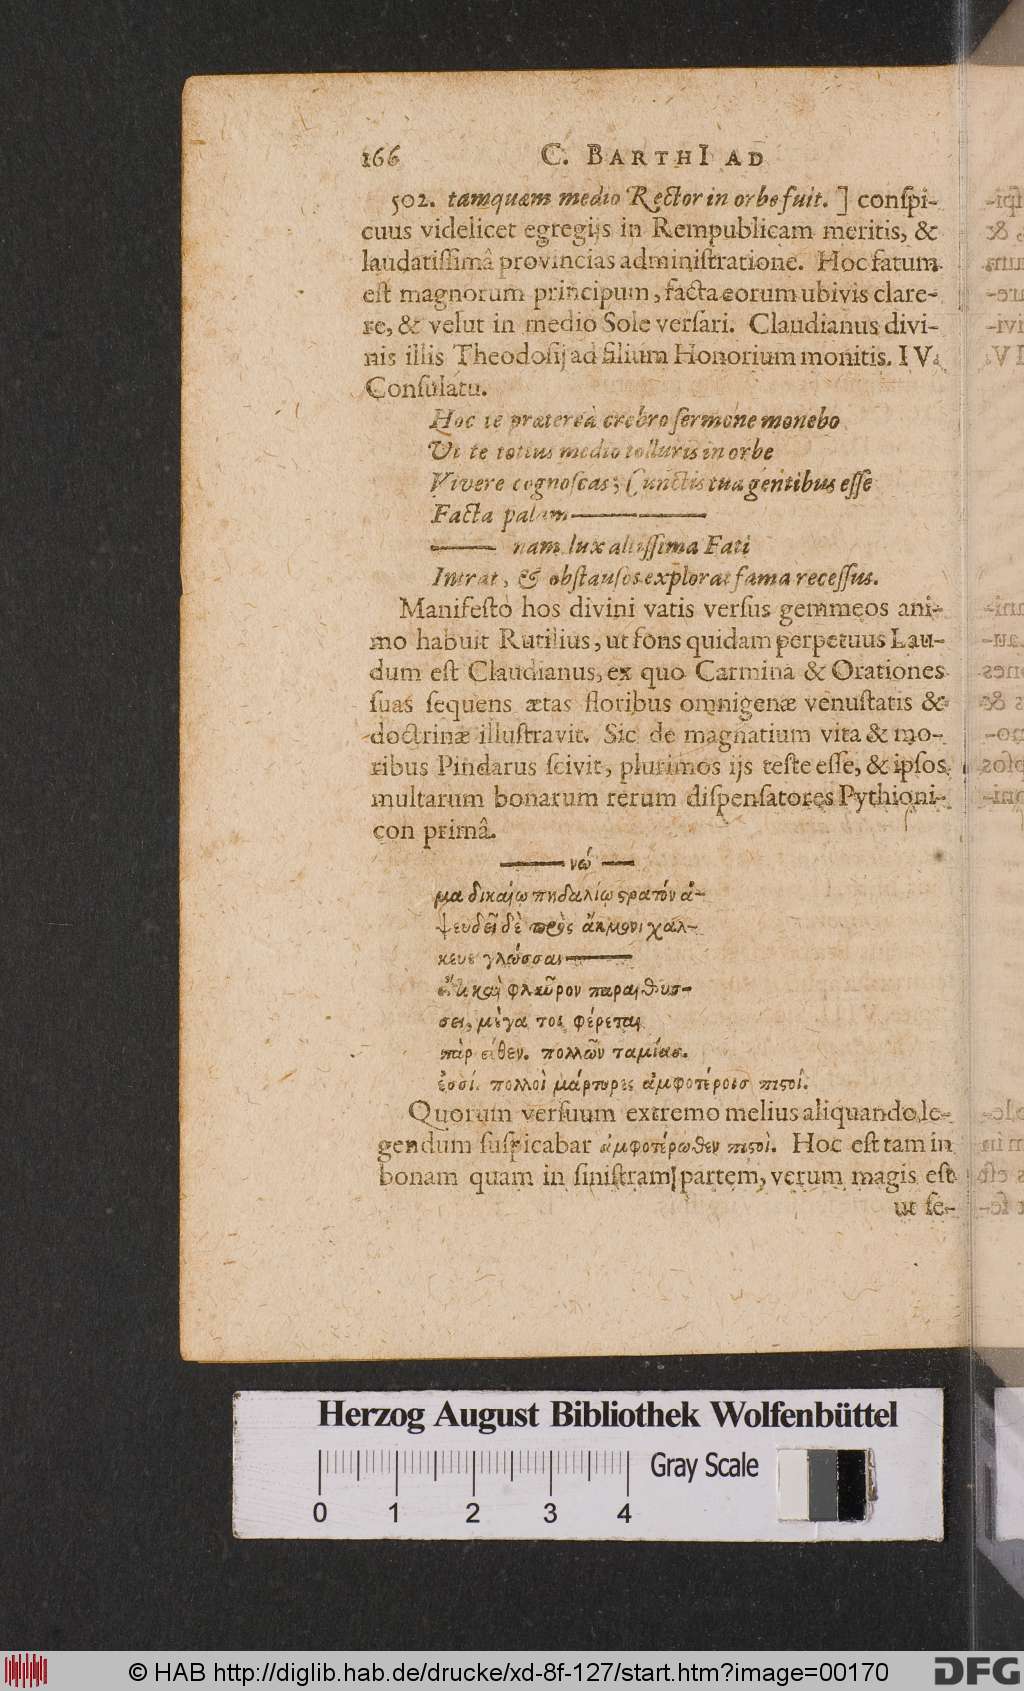 166 C. BARTHI AD
502. tamquam medio Rector in orbe fuit. ] conſpi-
cuus videlicet egregijs in Rempublicam meritis, &
laudatiſſimâ provincias adminiſtratione. Hoc fatum
eſt magnorum principum, facta eorum ubivis clare-
re, & velut in medio Sole verſari. Claudianus divi-
nis illis Theodoſij ad filium Honorium monitis. IV.
Conſulatu.
Hoc te prætereà crebro ſermone monebo
Ut te totius medio telluris in orbe
Vivere cognoſcas; Cunctis tua gentibus eſſe
Facta palam —— ——
—— nam lux altiſſima Fati
Intrat, & obſtauſos explorat fama receſſus.
Manifeſtò hos divini vatis verſus gemmeos ani-
mo habuit Rutilius, ut fons quidam perpetuus Lau-
dum eſt Claudianus, ex quo Carmina & Orationes
ſuas ſequens ætas floribus omnigenæ venuſtatis &
doctrinæ illuſtravit. Sic de magnatium vita & mo-
ribus Pindarus ſcivit, plurimos ijs teſte eſſe, & ipſos
multarum bonarum rerum diſpenſatores Pythioni-
con primâ.
—— νώ ——
μα δικαίῳ πηδαλίῳ ϛρατόν ἀ-
ψευδεῖ δὲ πρὸς ἄκμονι χάλ-
κευε γλώσσαι ——
εἴ κ καὶ φλαῦρον παραιθύσ-
σει, μέγα τοι φέρεται
πὰρ σέθεν. πολλῶν ταμίας.
ἐσσί. πολλοὶ μάρτυρες ἀμφοτέροισ πιϛοί.
Quorum verſuum extremo melius aliquando le-
gendum ſuſpicabar ἀμφοτέρωθεν πιϛοὶ. Hoc eſt tam in
bonam quam in ſiniſtram partem, verum magis eſt
ut ſe-
Herzog August Bibliothek Wolfenbüttel
Gray Scale
0 1 2 3 4
© HAB http://diglib.hab.de/drucke/xd-8f-127/start.htm?image=00170
DFG